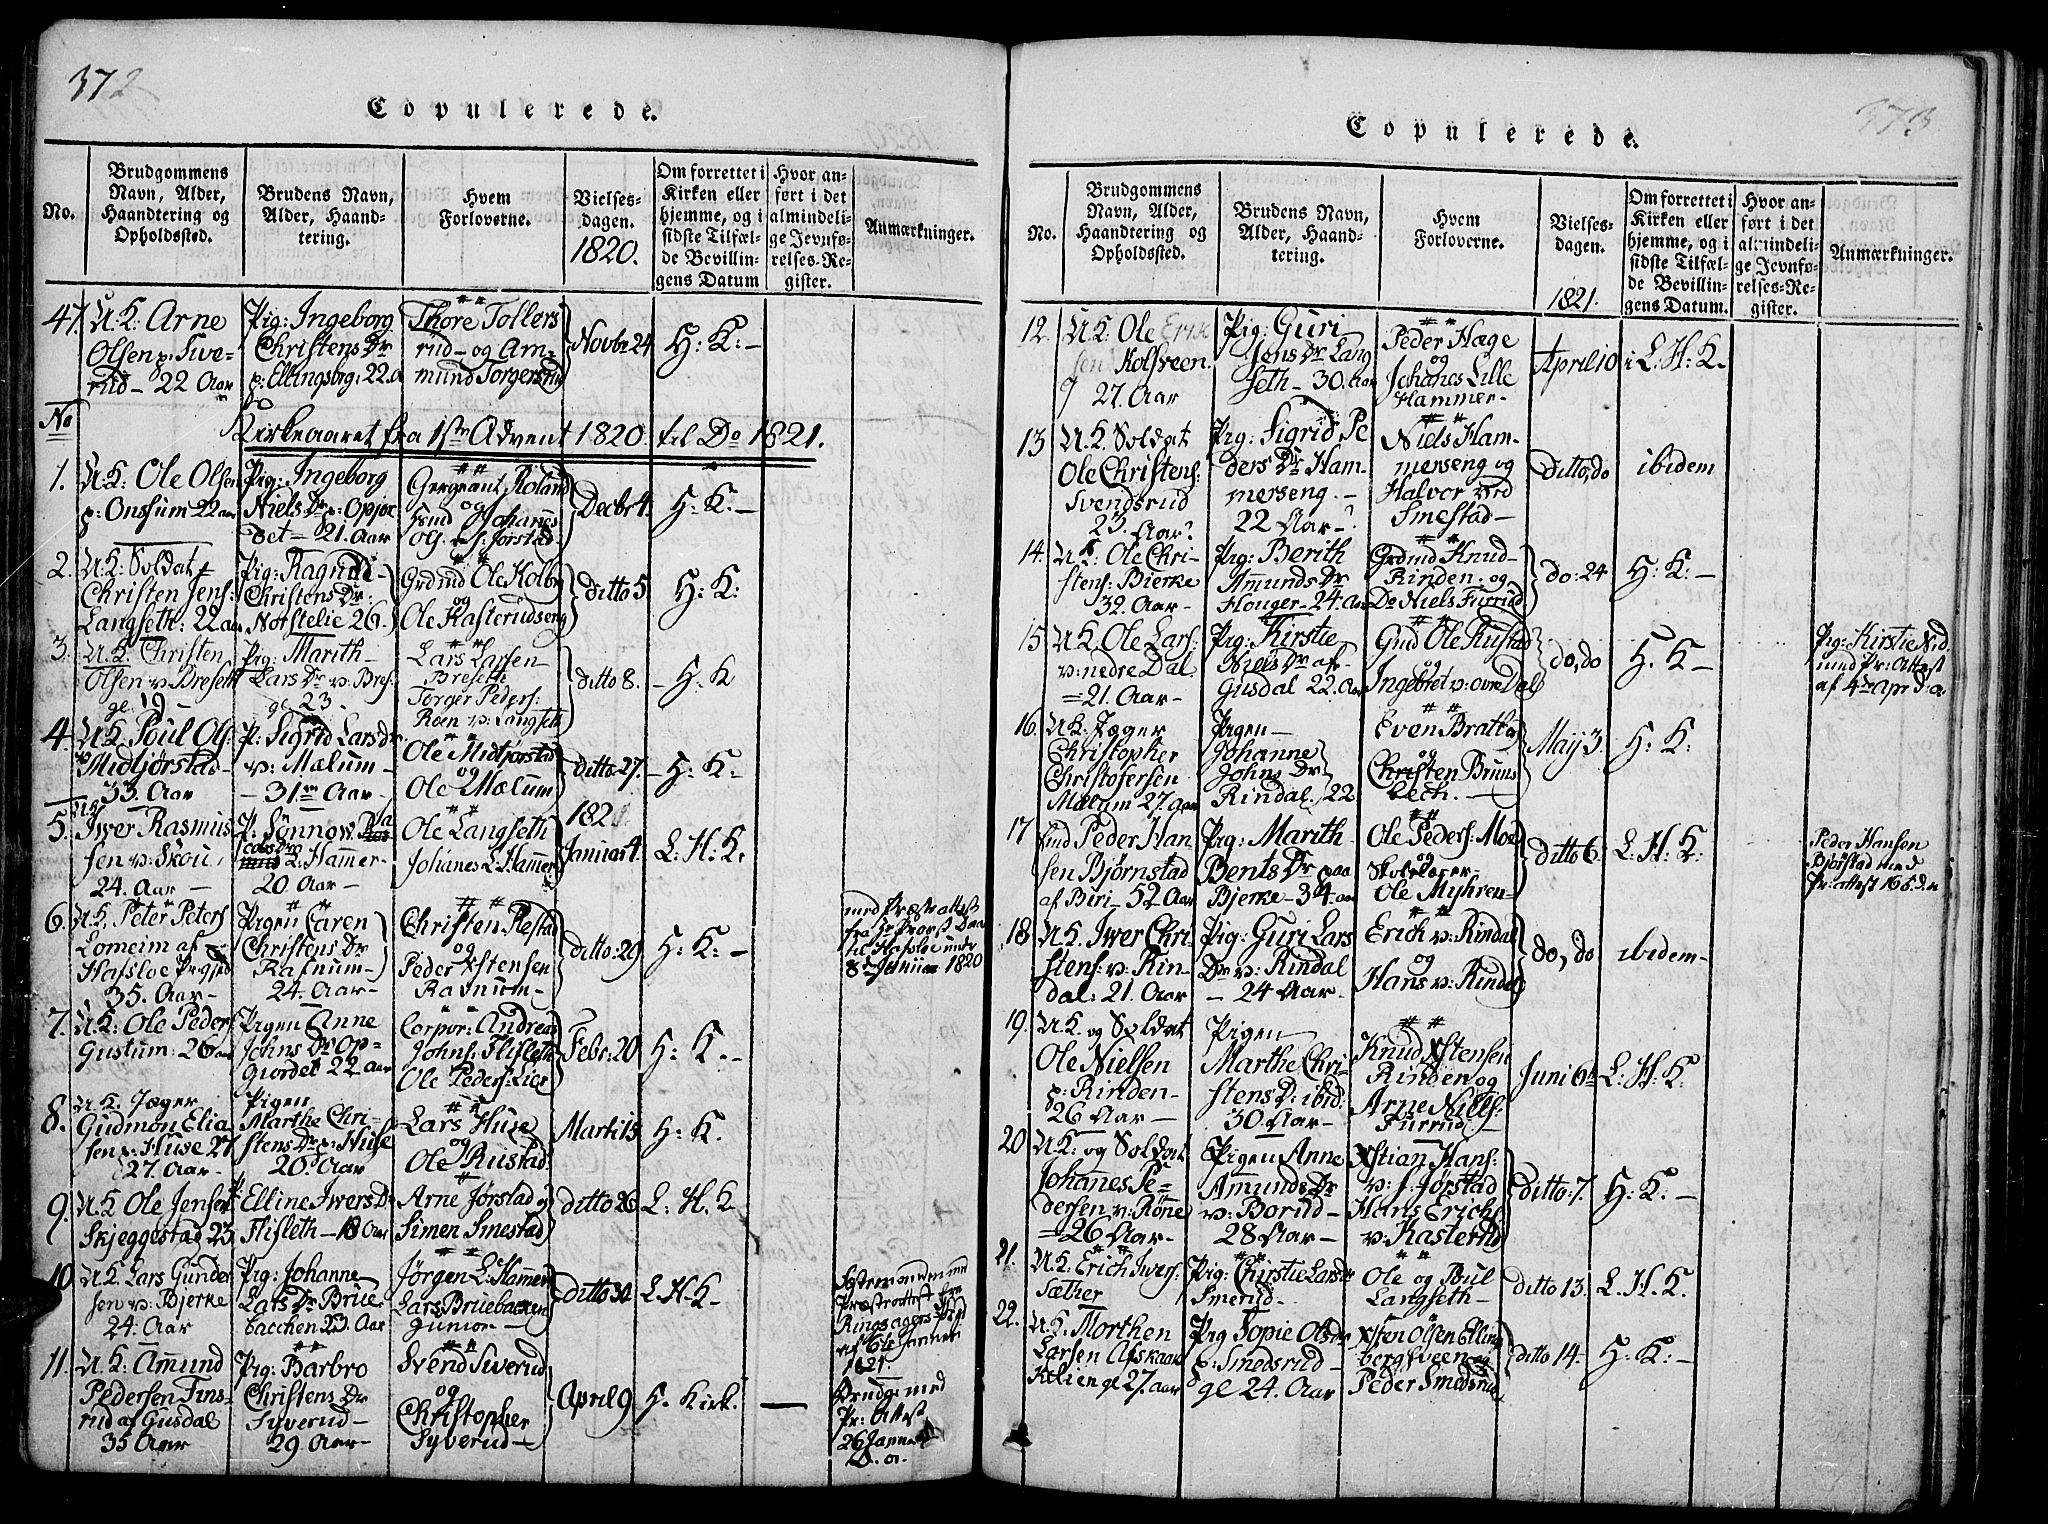 372
Copulerede.
No.
Brudgommens
Navn, Alder,
Haandtering og
Opholdssted.
Brudens Navn,
Alder, Haand-
tering.
Hvem
Forloverne.
Vielses-
dagen.
1820.
Om forrettet i
Kirken eller
hjemme, og i
sidste Tilfæl-
de Bevillin-
gens Datum
Hvor an-
ført i det
almindeli-
ge Jevnfø-
relses-Re-
gister.
Anmærkninger.
47. U: K: Arne
Olsen p: Swe-
rud - 22 Aar
Pig: Ingeborg
Christens Dr
p: Ellingsbrg: 22.
Thore Tollers
rud - og Am-
mund Torgersrud
Novbr 24
H: K: -
No
Kirkeaaret fra 1ste Advent 1820 til Do 1821.
1. U: K: Ole Olsen
p: Onsum 22 aar
Pig: Ingeborg
Niels Dr p: Opjor
det - 21. Aar
Sergeant Roland
og Johannes
Jørstad
Decbr 4.
H: K: -
2. U: K: Soldat
Christen Jens:
Langseth: 22 aar
Pig: Ragnild
Christens Dr:
Nordstelie 26.
Grdmd Ole Kolbr
og
Ole Kasterudseng
ditto 5.
H: K:
3. U. K. Christen
Olsen v: Breseth
ge. 19
Pig: Marith
Lars Dr v: Bres:
ge 23.
Lars Larsen
Breseth
Torger Peders:
Roen v: Langseth
ditto 8.
- H: K
4. U K Poul Ols
Midtjørstad
33. Aar
P: Sigrid Lars Dr
v: Mælum -
- 31 Aar -
Ole Midtjørstad
og
Ole Mælum
ditto 27.
- H: K:
1821
5. UK
Iwer Rasmus
sen v: Skou
24. Aar -
P: Sønnow
L: Hammer
20 Aar -
Ole Langseth
Johanes L: Hammer
Januar 4.
L: H: K:
6. U K. Peter Peters
Lomeim af
Hafsloe Pr:gjeld
35. Aar -
Pigen Caren
Christens Dr
Rafnum -
24. Aar -
Christen Restad
og
Peder Xstensen
Ravnum -
ditto: 29
H: K: -
med Præst attest
fra Hr Provst Daa
til Hafsloe under
8de Januar 1820
7. U. K: Ole Peders
Gustum: 26 aar
Pigen Anne
Johns Dr Op-
giordet 22 Aar
Corpor: Andreas
Johns: Flisleth
Ole Peders: Lier
Febr: 20
H: K. -
8. U K. Jæger
Gudmon Elia
sen p: Huse 27
27. Aar -
Pigen
Marthe Chri-
stens Dr p: Huse
20. Aar
Lars Huse
og
Ole Rustad
Marti 15.
H: K.
9. U K Ole Jensen
Skjeggestad 23.
Elline Iwers Dr
Flisleth - 18 Aar
Arne Jørstad og
Simen Smestad
ditto 26
L: H. K
10. U K Lars Gunder
sen v: Bjerke
24. Aar
Pig: Johanne
Lars Dr Brue
bacchen 23. Aar
Jørgen L: Hammer
Lars Bruebacken
Junior -
ditto 30
L. H. K -
med
Præsteattest fra
Ringsagers Præst
af 6te Januar
1821.
11. U K. Amund
Pedersen Fins
rud af Gusdal
35 Aar
Pig: Barbro
Christens Dr
Syverud -
29 Aar -
Svend Siverud
og
Christopher
Syverud -
April 9
H. Kirk.
Brudg: med
Pr: Attest
26 Janua
373
Copulerede.
No.
Brudgommens
Navn, Alder,
Haandtering og
Opholdssted.
Brudens Navn,
Alder, Haand-
tering.
Hvem
Forloverne.
Vielses-
dagen.
1821.
Om forrettet i
Kirken eller
hjemme, og i
sidste Tilfæl-
de Bevillin-
gens Datum.
Hvor an-
ført i det
almindeli-
ge Jevnfø-
relses-Re-
gister.
Anmærkninger.
12. U K. Ole Erik
sen Kolsveen
27. Aar
Pig: Guri
Jens Dr Lang
seth - 30. Aar
Peder Hage
og
Johanes Lille
Hammer -
April 10
i L. H. K.
13. U. K Soldat
Ole Christens:
Svendsrud
23. Aar
Pig: Sigrid Pe
ders Dr Ham-
merseng. -
22 Aar -
Niels Ham-
merseng og
Halvor
Smestad -
Ditto, do
ibidem
14. U: K: Ole Chri-
stens: Bierke
32. Aar -
Pig: Berith
Amunds Dr
Flouger - 24. Aar
Grdmd Knud
Rinden. og
Do Niels Furrud
do: 24
H: K: -
15. U K. Ole Lars:
v: nedre Dal
= 21. Aar -
Pig: Kirstie
Niels Dr af
Gusdal 22. Aar
Gmd Ole Rustad
og
Ingebret v: ovre Dal
do, do
H: K -
Pig: Kirstie Nid
med Pr: Attest
af 4de Apr d: a
16. U K. Jæger
Christopher
Christofersen
Mælum 27. aar
Pigen
Johanne
Johns Dr
Rindal. 22
Even Bratbr
og
Christen Bruns
bech. -
May 3.
H: K:
17. Peder Han
sen Bjørnstad
af Biri - 52 Aar
Pig: Marith
Bents Dr paa
Bjerke - 34 aar
Ole Peders: Moe
og
Skolelærer
Ole Myhren -
Ditto 6.
L: H. K:
Peder Hansen
Bjørstad med
Pr: attest
18. U K. Iwer Chri-
stens: v: Rin-
dal: 21. Aar
Pig: Guri Lars
Dr v: Rindal
- 24 Aar -
Erich v: Rindal
og
Hans v: Rindal
do, do
ibidem -
19. U. K. og Soldat
Ole Nielsen
p: Rinden -
26 Aar -
Pigen
Marthe Chri-
stens D: ibid:
30. Aar -
Knud Xstensen
Rinden og
Arne Niels:
Furrud.
Juni 6te
L: H. K.
20 U K: og Soldat
Johannes Pe-
dersen v: Rønne
= 26 Aar. -
Pigen Anne
Amunds Dr
v: Borud -
28 Aar -
Xstian Hans:
v: Jørstad
Hans Erichs
v: Kasterud
Ditto: 7.
H: K. -
21. U K. Erich Iwers:
Sæther
Pig: Chirstie Lars Dr
Smerud -
Ole og Poul
Langseth -
ditto 13.
L. H. K.
22. U K: Morthen
Larsen Afskaar
ge 27. aar
Pig Sopie Ols Dr
p: Smedsrud -
ge 24. Aar
Xsten Olsen Elling
bergsveen og
Peder Smedsrud
ditto 14.
H: K: -